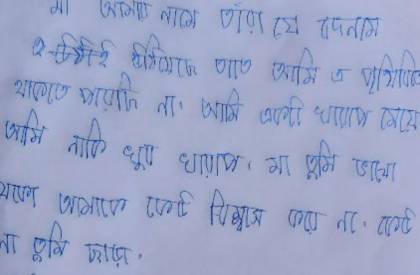 মা আমার নামে তাঁরা যে বদনাম
তাতে আমি এ পৃথিবিতে
থাকতে পারছি না। আমি একটা খারাপ মেয়ে
আমি নাকি খুব খারাপ। মা তুমি ভালো
থেকো আমাকে কেউ বিশ্বাস করে না। কেউ
না তুমি ছাড়া।